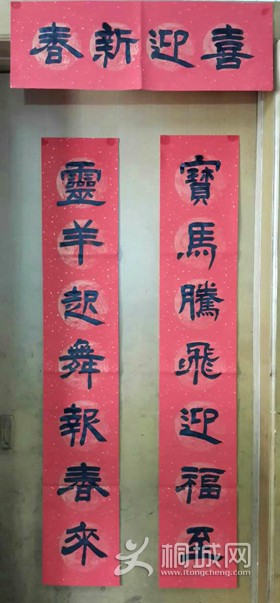 喜迎新春
寶馬騰飛迎福至
靈羊起舞報春來
桐城网
www.itongcheng.com